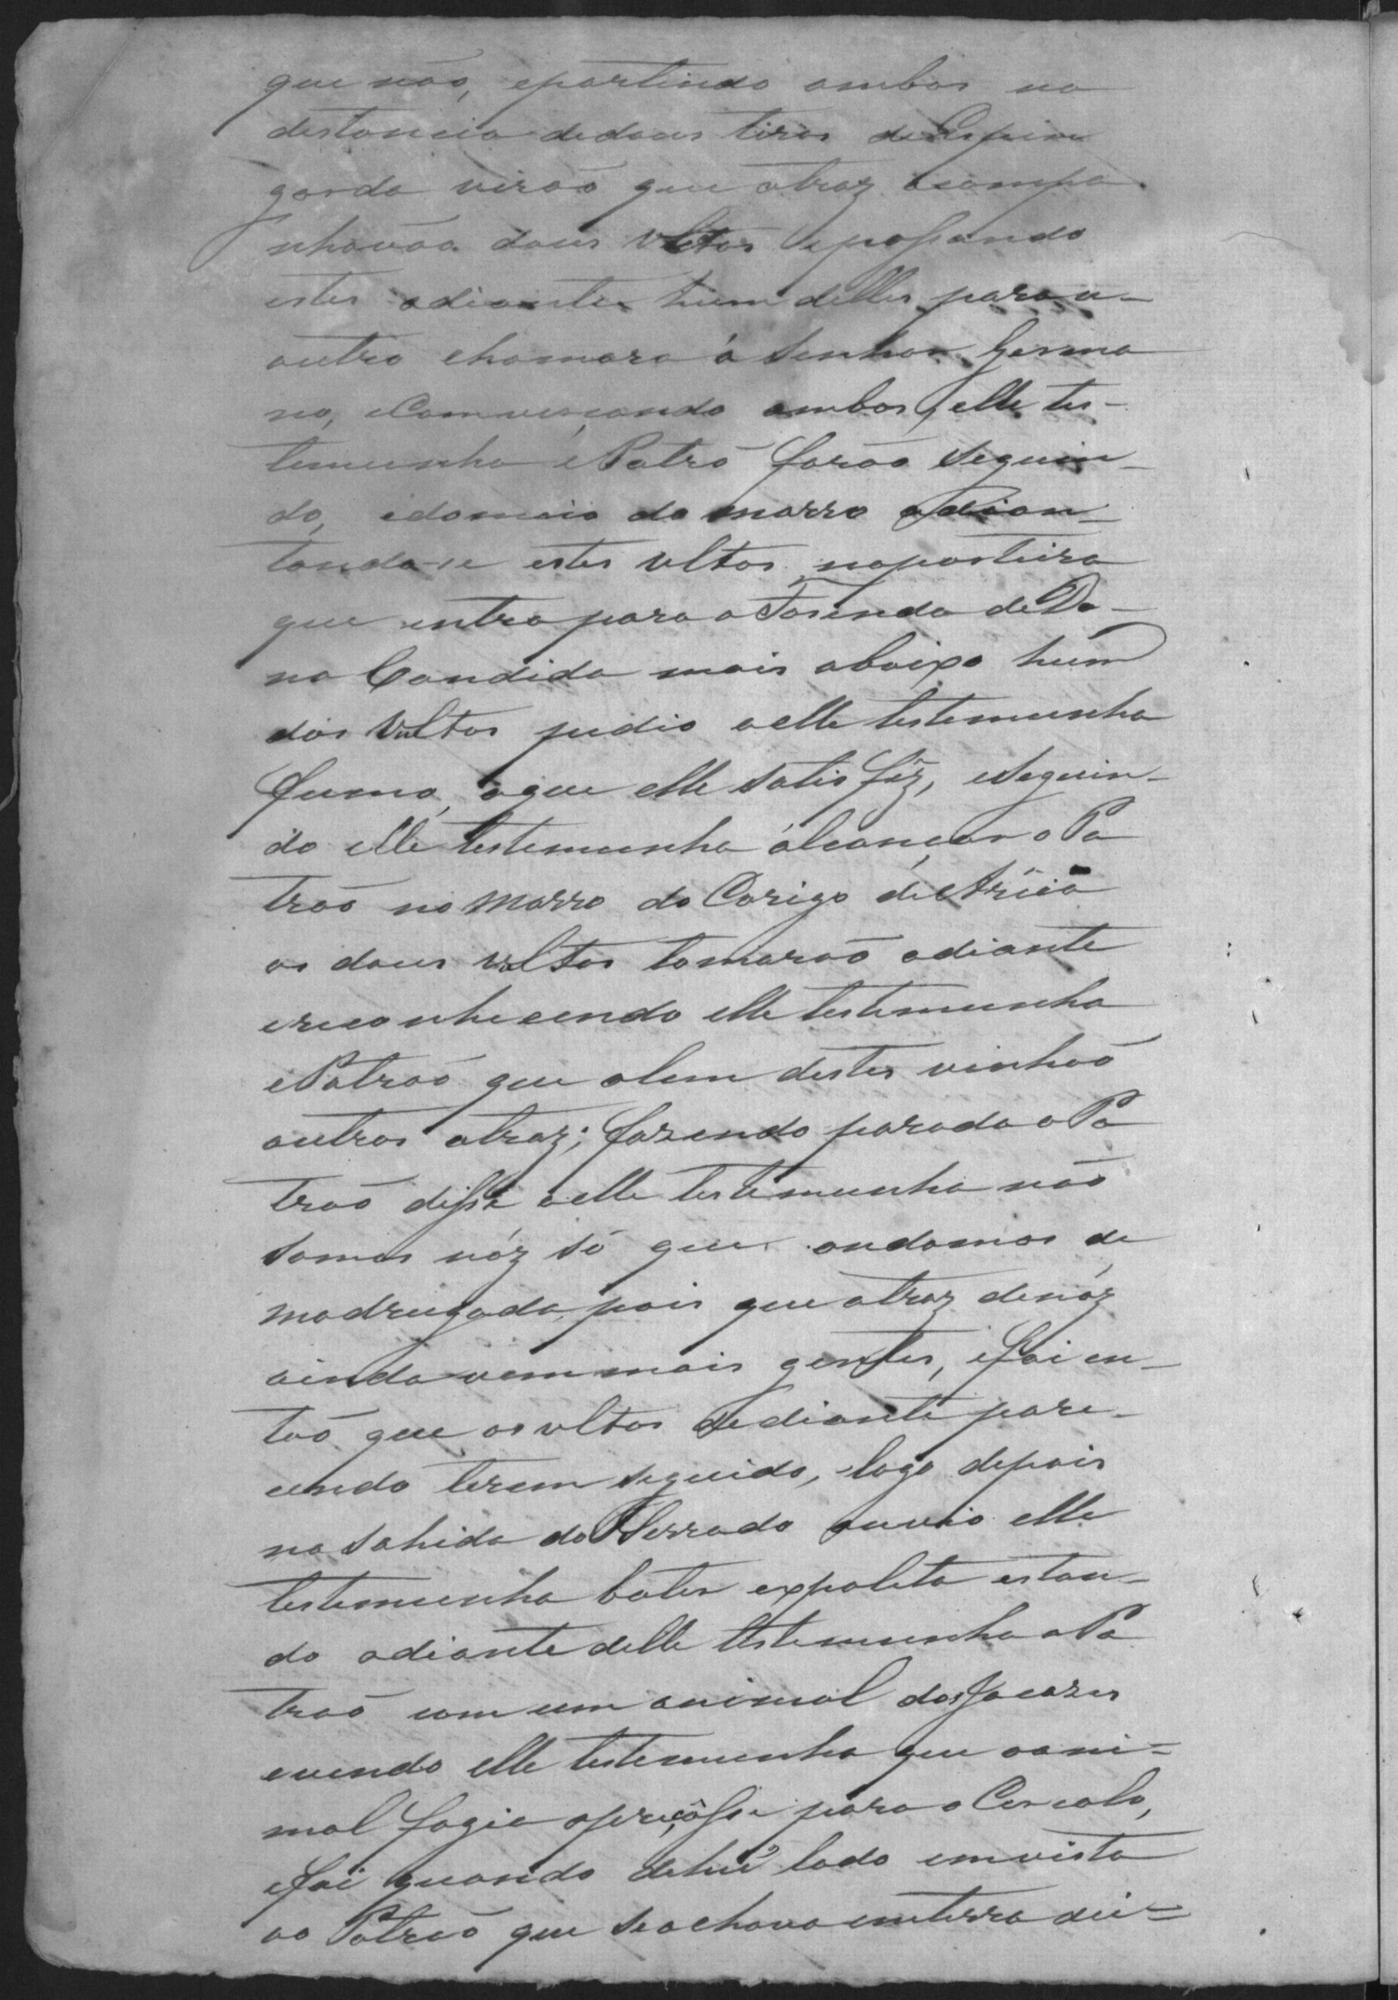 que não, epartindo ambos na
distancia dedous tiros de Espin
garda virão que atraz acompa
nhavão dous Vltos epassando
estes adiante hum delles para o
outro chamara á Senhor Germa
no, eComversando ambos, elle tes-
temunha ePatrõ forão seguin-
do, edomeio do morro adian-
tando-se estes vltos, naporteira
que entra para aFasenda deDo-
na Candida mais abaixo hum
dos Vultos pedio aelle testemunha
fumo, aque elle satis fêz, eseguin-
do elle testemunha álcançar o Pa
trão no Morro do Corigo deArêia
os dous vultos tomarão adiante
ereconhecendo elle testemunha
ePatrão que alem destes vinhão
outros atraz; fazendo parada oPa
trão disse aelle testemunha não
somos nóz só que andamos de
madrugada, pois que atraz denóz
ainda vem mais gentes, efoi en-
tão que osvltos dediante pare-
cendo terem seguido, logo depois
na sahida do Serrado ouvio elle
testemunha bater expoleta estan-
do adiante delle testemunha oPa
trão com um animal dos Jacazes
evendo elle testemunha que oani-
mal fogia para o Cercado,
efoi quando dehũ lado emvista
ao Patrão que seachava emterra dei-